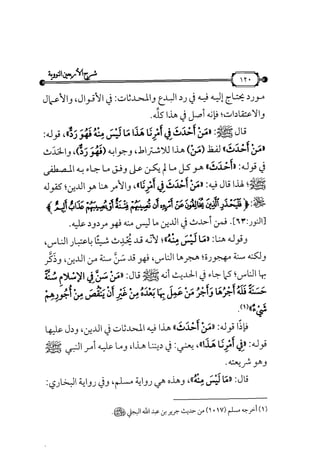 شرح الأربعين النووية
١٢٠
مورد يحتاج إليه فيه في رد البدع والمحدثات: في الأقوال، والأعمال
والاعتقادات؛ فإنه أصل في هذا كلِّه.
قال ﷺ: «مَنْ أَحْدَثَ فِي أَمْرِنَا هَذَا مَا لَيْسَ مِنْهُ فَهُوَ رَدٌّ»، قوله:
«مَنْ أَحْدَثَ» لفظ (مَنْ) هذا للاشتراط، وجوابه (فَهُوَ رَدٌّ)، والحَدَث
في قوله: «أَحْدَثَ» هو كل ما لم يكن على وفق ما جاء به المصطفى
ﷺ؛ لذا قال فيه: «مَنْ أَحْدَثَ فِي أَمْرِنَا»، والأمر هنا هو الدين؛ كقوله
﴿فَلْيَحْذَرِ الَّذِينَ يُخَالِفُونَ عَنْ أَمْرِهِ أَنْ تُصِيبَهُمْ فِتْنَةٌ أَوْ يُصِيبَهُمْ عَذَابٌ أَلِيمٌ﴾
[النور:٦٣]. فمن أحدث في الدين ما ليس منه فهو مردود عليه.
وقوله هنا: «مَا لَيْسَ مِنْهُ»؛ لأنه قد يُحْدِث شيئًا باعتبار الناس،
ولكنه سنة مهجورة؛ هجرها الناس، فهو قد سَنَّ سنة من الدين، وذَكَّر
بها الناس؛ كما جاء في الحديث أنه ﷺ قال: «مَنْ سَنَّ فِي الإِسْلَامِ سُنَّةً
حَسَنَةً فَلَهُ أَجْرُهَا وَأَجْرُ مَنْ عَمِلَ بِهَا بَعْدَهُ مِنْ غَيْرِ أَنْ يَنْقُصَ مِنْ أُجُورِهِمْ
شَيْءٌ»(١).
فإذًا قوله: «مَنْ أَحْدَثَ» هذا فيه المحدثات في الدين، ودل عليها
قوله: «فِي أَمْرِنَا هَذَا»، يعني: في ديننا هذا، وما عليه أمر النبي ﷺ
وهو شريعته.
قال: «مَا لَيْسَ مِنْهُ»، وهذه هي رواية مسلم، وفي رواية البخاري:
(١) أخرجه مسلم (٢٠١٧) من حديث جرير بن عبد الله البجلي ﵁.